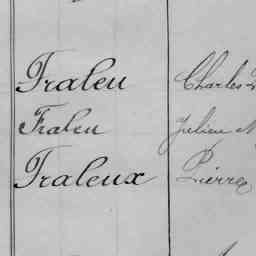 Fraleu Charles
Fraleu Julien
Fraleux Pierre